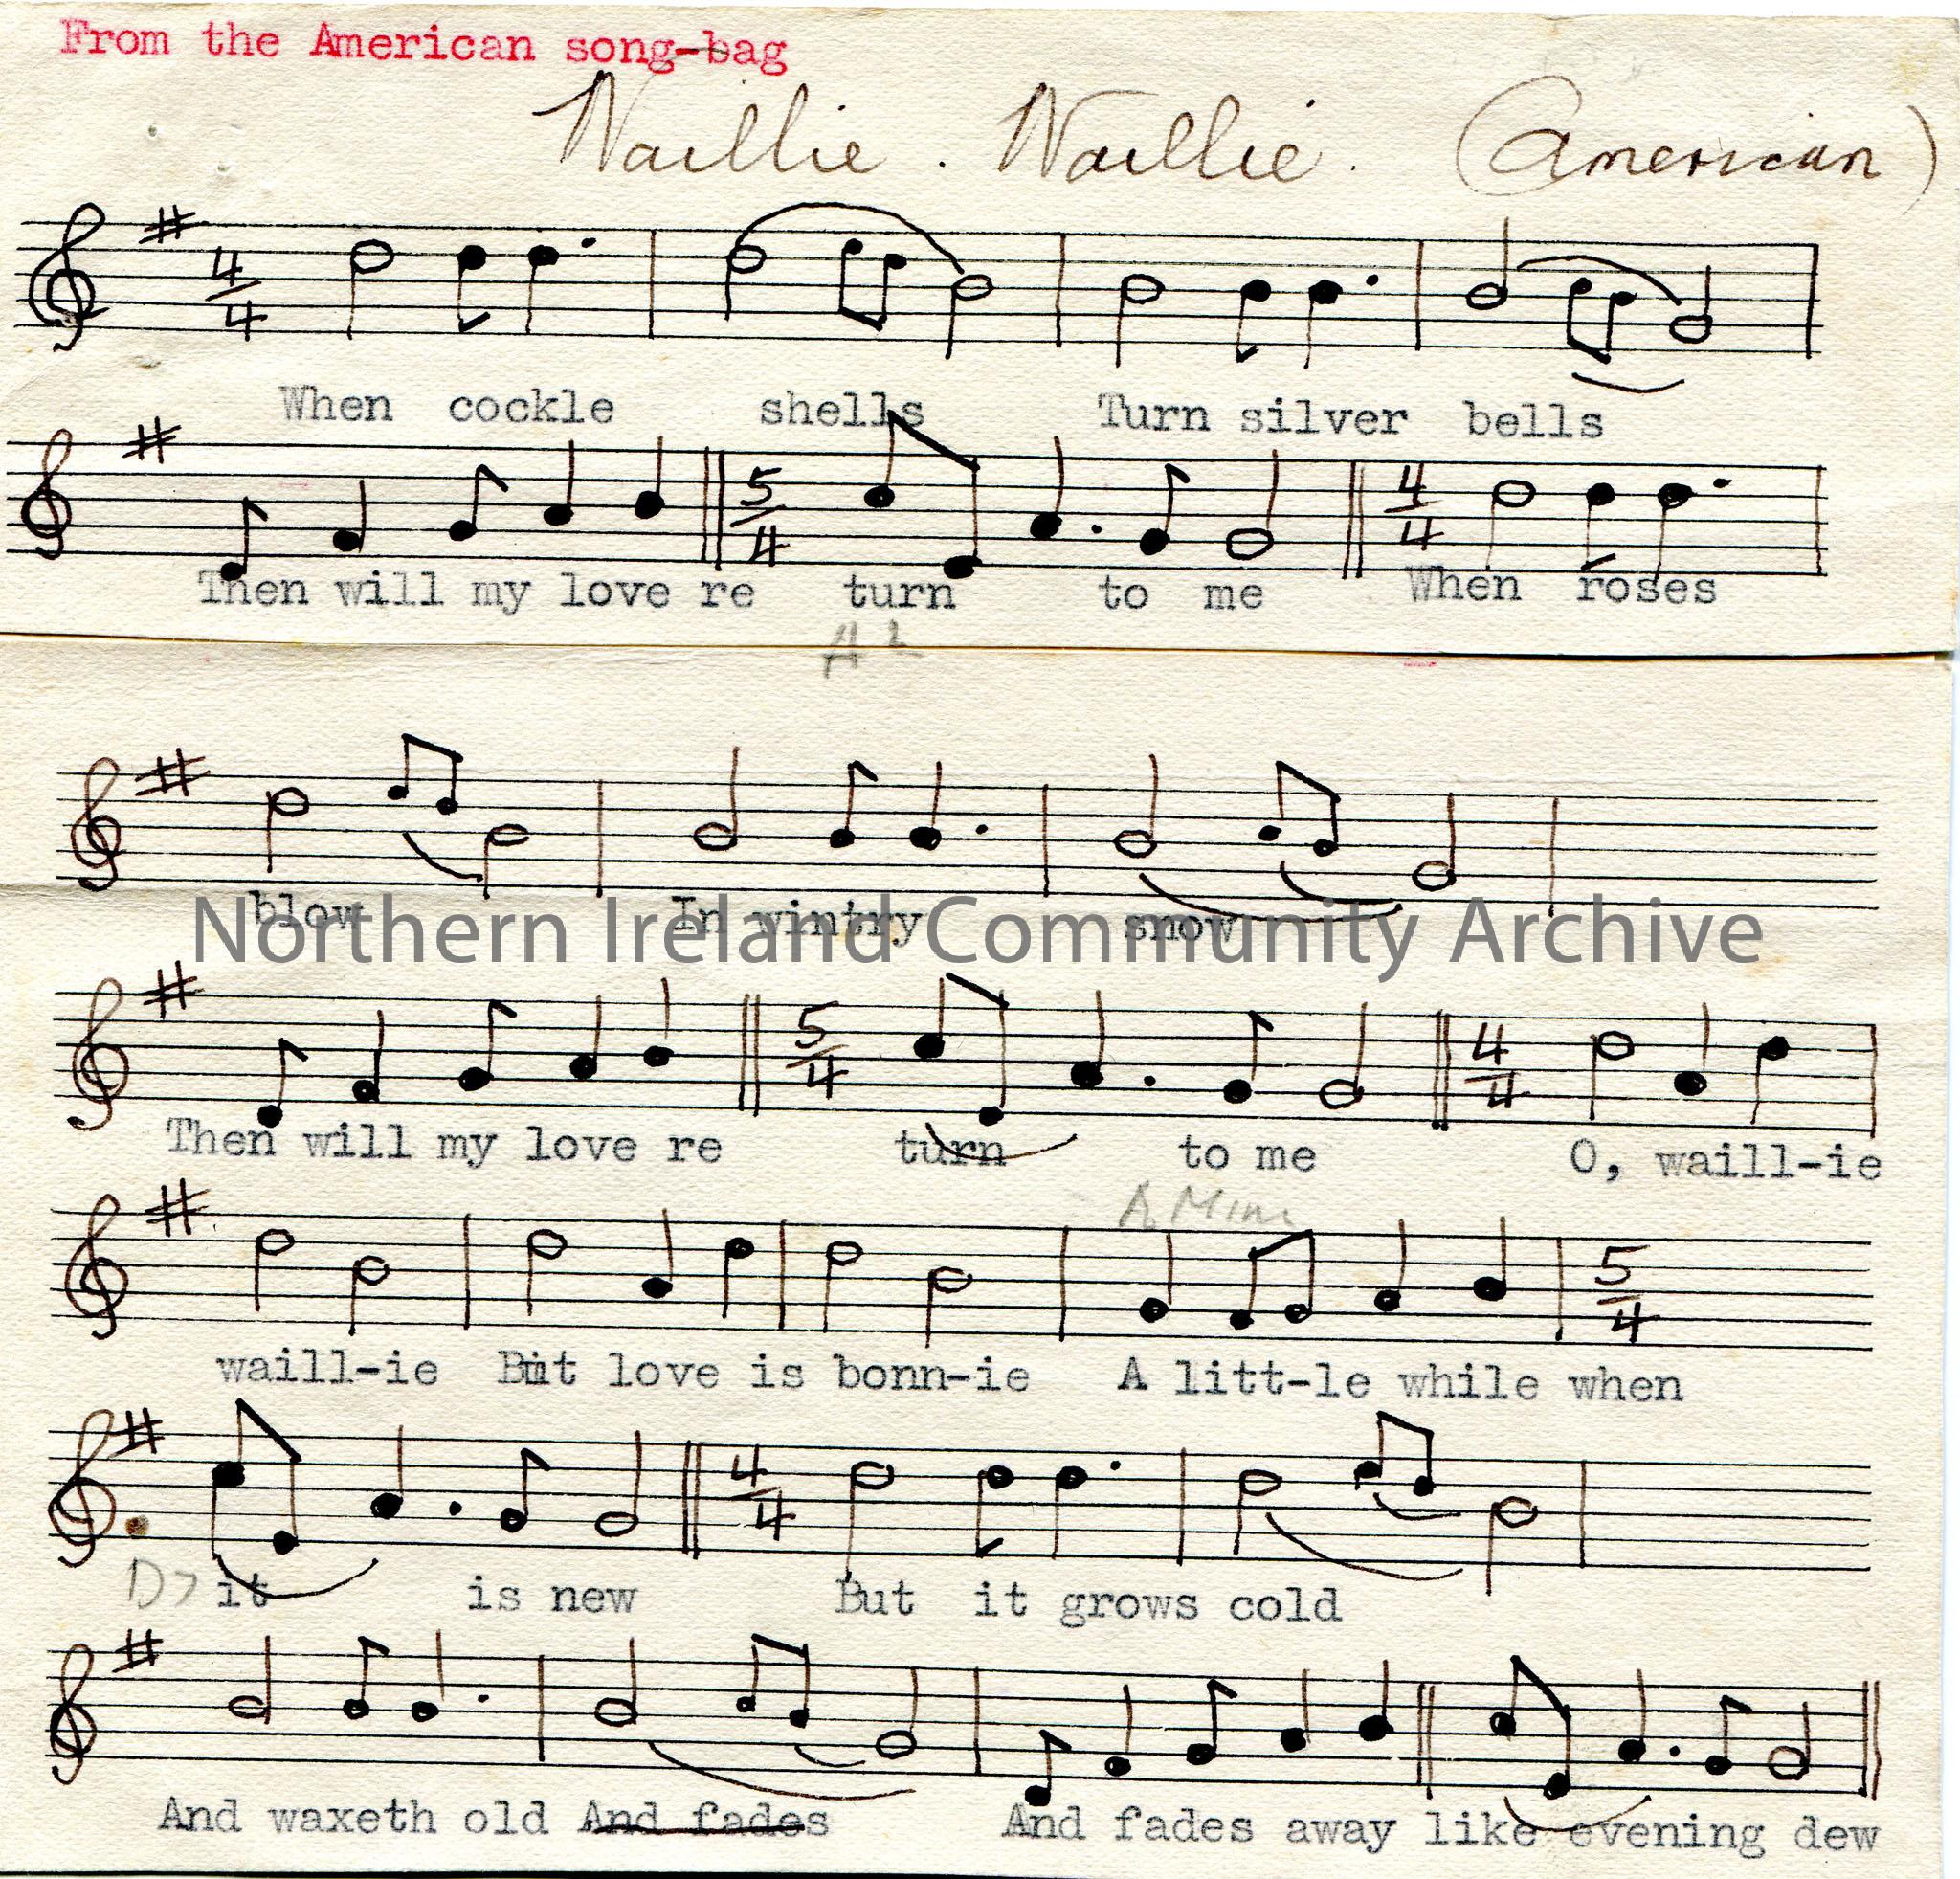 From the American song-bag
Waillie. Waillie. (American)
4/4
When cockle shells Turn silver bells
5/4 4/4
Then will my love re turn to me When roses
blow In wintry snow
Northern Ireland Community Archive
5/4 4/4
Then will my love re turn to me O, waill-ie
A Min
5/4
waill-ie But love is bonn-ie A litt-le while when
4/4
D7 it is new But it grows cold
And waxeth old And fades And fades away like evening dew